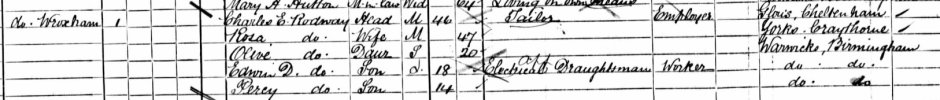 Mary A. Hutton M-in-law Wid 64 Living on own means
do. Wroxham 1 Charles E. Rodway Head M 46 Tailor Employer Glos., Cheltenham
Rosa do. Wife M 47 Yorks. Craythorne
Olive do. Daur S 20 Warwicks, Birmingham
Edwin D. do. Son S 18 Electrical Draughtsman Worker do. do.
Percy do. Son 14 do. do